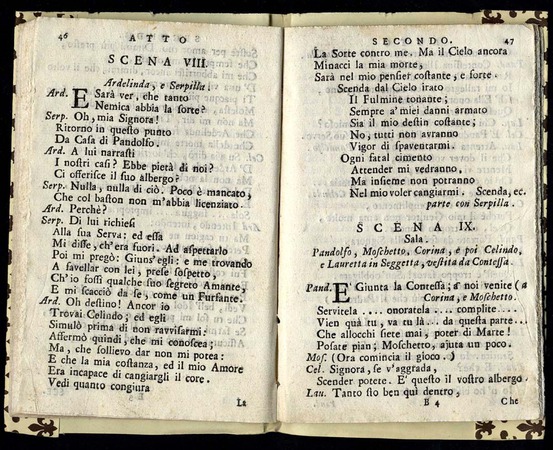 46 ATTO
SCENA VIII.
Ardelinda, e Serpilla.
Ard. E Sarà ver, che tanto
Nemica abbia la sorte?
Serp. Oh, mia Signora!
Ritorno in questo punto
Da Casa di Pandolfo.
Ard. A lui narrasti
I nostri casi? Ebbe pietà di noi?
Ci offerisce il suo albergo?
Serp. Nulla, nulla di ciò. Poco è mancato,
Che col baston non m'abbia licenziato.
Ard. Perchè?
Serp. Di lui richiesi
Alla sua Serva: ed essa
Mi disse, ch'era fuori. Ad aspettarlo
Poi mi pregò: Giuns'egli: e me trovando
A favellar con lei, prese sospetto,
Ch'io fossi qualche suo segreto Amante,
E mi scacciò da se, come un Furfante.
Ard. Oh destino! Ancor io
Trovai Celindo; ed egli
Simulò prima di non ravvisarmi:
Affermò quindi, che mi conoscea;
Ma, che sollievo dar non mi potea:
E che la mia costanza, ed il mio Amore
Era incapace di cangiargli il core.
Vedi quanto congiura
La
SECONDO. 47
La Sorte contro me. Ma il Cielo ancora
Minacci la mia morte,
Sarà nel mio pensier costante, e forte.
Scenda dal Cielo irato
Il Fulmine tonante;
Sempre a' miei danni armato
Sia il mio destin costante;
No, tutti non avranno
Vigor di spaventarmi.
Ogni fatal cimento
Attender mi vedranno,
Ma insieme non potranno
Nel mio voler cangiarmi. Scenda, ec.
parte con Serpilla.
SCENA IX.
Sala.
Pandolfo, Moschetto, Corina, e poi Celindo,
e Lauretta in Seggetta, vestita da Contessa.
Pand. E Giunta la Contessa; a' noi venite (a
Corina, e Moschetto.
Servitela .... onoratela .... complite ....
Vien quà tu, va tu là... da questa parte...
Che allocchi siete mai, poter di Marte!
Posate pian; Moschetto, ajuta un poco.
Mos. (Ora comincia il gioco.)
Cel. Signora, se v'aggrada,
Scender potere. E' questo il vostro albergo.
Lau. Tanto sto ben quì dentro,
B 4 Che